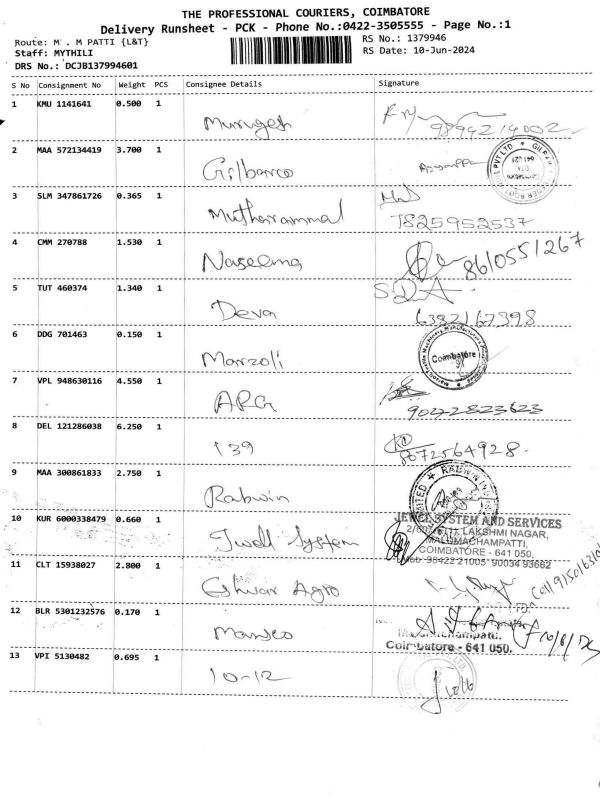 THE PROFESSIONAL COURIERS, COIMBATORE
Delivery Runsheet - PCK - Phone No.:0422-3505555 - Page No.:1
Route: M . M PATTI {L&T}
RS No.: 1379946
Staff: MYTHILI
RS Date: 10-Jun-2024
DRS No.: DCJB137994601
S No Consignment No Weight PCS Consignee Details Signature
1 KMU 1141641 0.500 1
Murugesh 9894214002
2 MAA 572134419 3.700 1
Gilbarco
3 SLM 347861726 0.365 1
Mutharammal 7825952537
4 CMM 270788 1.530 1
Naseema 8610551267
5 TUT 460374 1.340 1 SDA
Deva 6382167398
6 DDG 701463 0.150 1
Marzoli Coimbatore
7 VPL 948630116 4.550 1
ARG 9022823623
8 DEL 121286038 6.250 1
139 8072564928.
9 MAA 300861833 2.750 1
Rabwin
10 KUR 6000338479 0.660 1
Jwell System
JEWEL SYSTEM AND SERVICES
LAKSHMI NAGAR,
MALUMACHAMPATTI,
COIMBATORE - 641 050.
98422 21005 90034 93662
11 CLT 15938027 2.800 1
Eshwar Agro
12 BLR 5301232576 0.170 1
Coimbatore - 641 050.
13 VPI 5130482 0.695 1
10-12